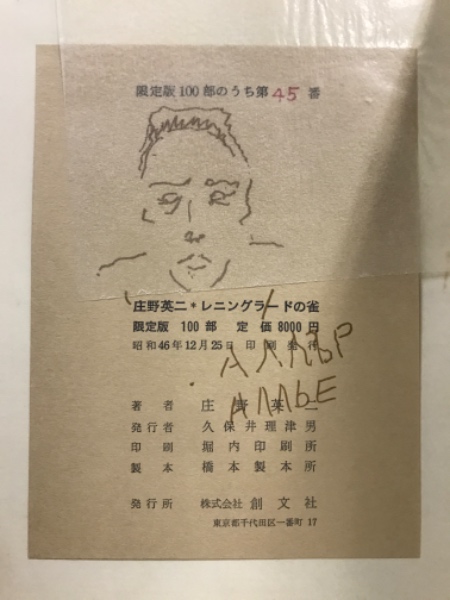 限定版100部のうち第45番
庄野英二*レニングラードの雀
限定版 100部 定価8000円
昭和46年12月25日 印刷発行
著者 庄野英二
発行者 久保井理津男
印刷 堀内印刷所
製本 橋本製本所
発行所 株式会社 創文社
東京都千代田区一番町17